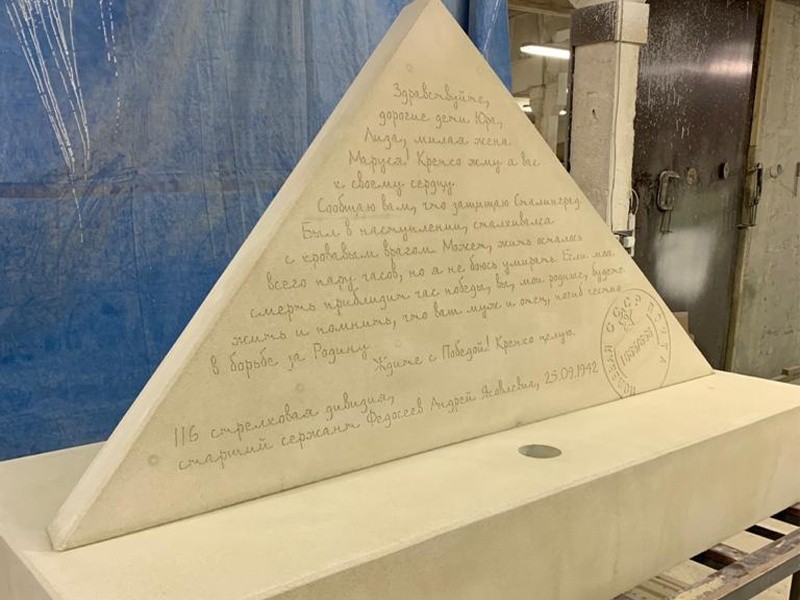 Здравствуйте,
дорогие дети Юра,
Лиза, милая жена
Маруся! Крепко жму я вас
к своему сердцу.
Сообщаю вам, что защищаю Сталинград.
Был в наступлении, сталкивался
с кровавым врагом. Может, жить осталось
всего пару часов, но я не боюсь умирать. Если моя
смерть приблизит час победы, вы, мои родные, будете
жить и помнить, что ваш муж и отец, погиб честно
в борьбе за Родину.
Ждите с Победой! Крепко целую.
116 стрелковая дивизия,
старший сержант Федосеев Андрей Яковлевич, 25.09.1942
ПОЛЕВАЯ СССР ПОЧТА